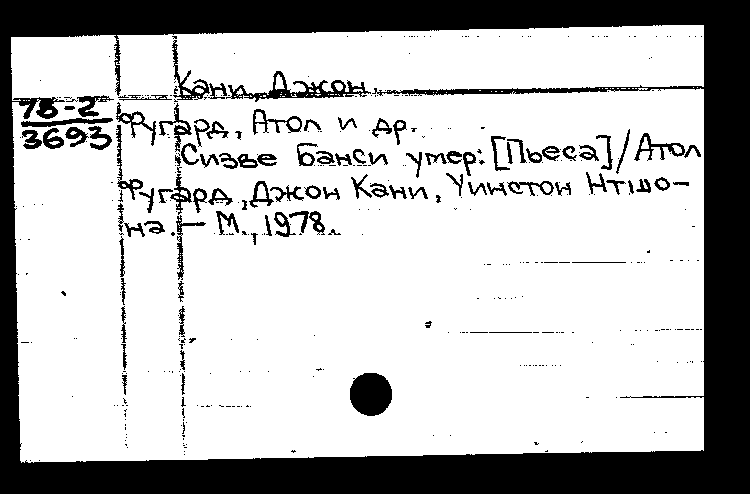 Кани, Джон.
78-2
3693
Фугард, Атол и др.
Сизве Банси умер: [Пьеса] / Атол
Фугард, Джон Кани, Уинстон Нтшо-
на. — М., 1978.